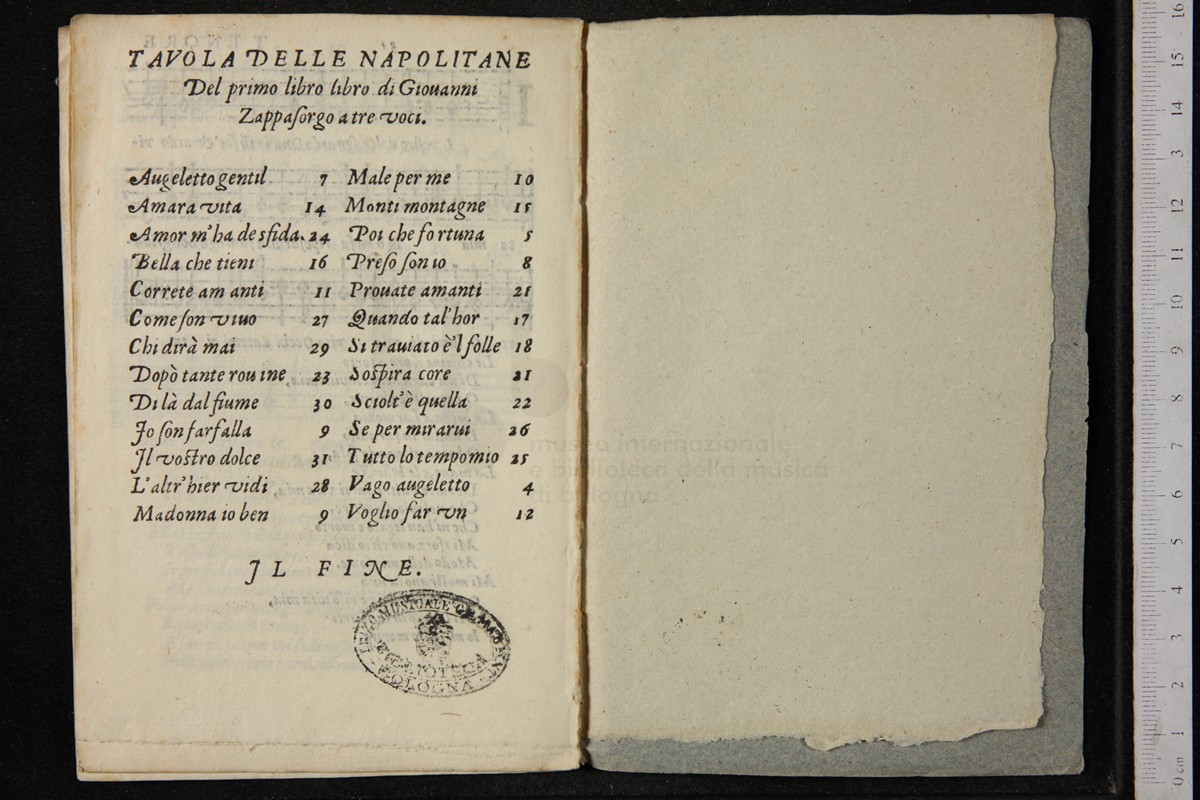 TAVOLA DELLE NAPOLITANE
Del primo libro libro di Giouanni
Zappasorgo a tre voci.
Augeletto gentil 7
Amara vita 14
Amor m'ha desfida. 24
Bella che tieni 16
Correte am anti 11
Come son viuo 27
Chi dirà mai 29
Dopò tante rou ine 23
Di là dal fiume 30
Jo son farfalla 9
Jl vostro dolce 31
L'altr'hier vidi 28
Madonna io ben 9
Male per me 10
Monti montagne 15
Poi che fortuna 5
Preso son io 8
Prouate amanti 21
Quando tal'hor 17
Si trauiato è'l folle 18
Sospira core 21
Sciolt'è quella 22
Se per mirarui 26
Tutto lo tempo mio 25
Vago augeletto 4
Voglio far vn 12
JL FINE.
LICEO MUSICALE
BIBLIOTECA
BOLOGNA
museo internazionale
e biblioteca della musica
di bologna
TENORE
0 cm 1 2 3 4 5 6 7 8 9 10 11 12 13 14 15 16